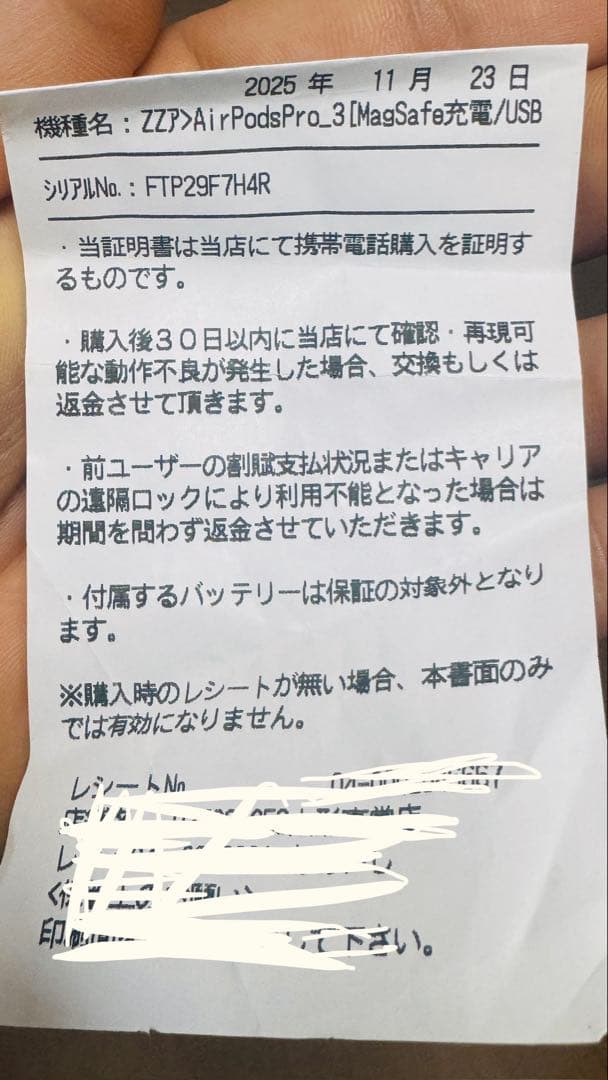 2025 年 11 月 23 日
機種名：ZZｱ>AirPodsPro_3[MagSafe充電/USB
ｼﾘｱﾙNo.：FTP29F7H4R
・当証明書は当店にて携帯電話購入を証明す
るものです。
・購入後３０日以内に当店にて確認・再現可
能な動作不良が発生した場合、交換もしくは
返金させて頂きます。
・前ユーザーの割賦支払状況またはキャリア
の遠隔ロックにより利用不能となった場合は
期間を問わず返金させていただきます。
・付属するバッテリーは保証の対象外となり
ます。
※購入時のレシートが無い場合、本書面のみ
では有効になりません。
レシートNo
して下さい。